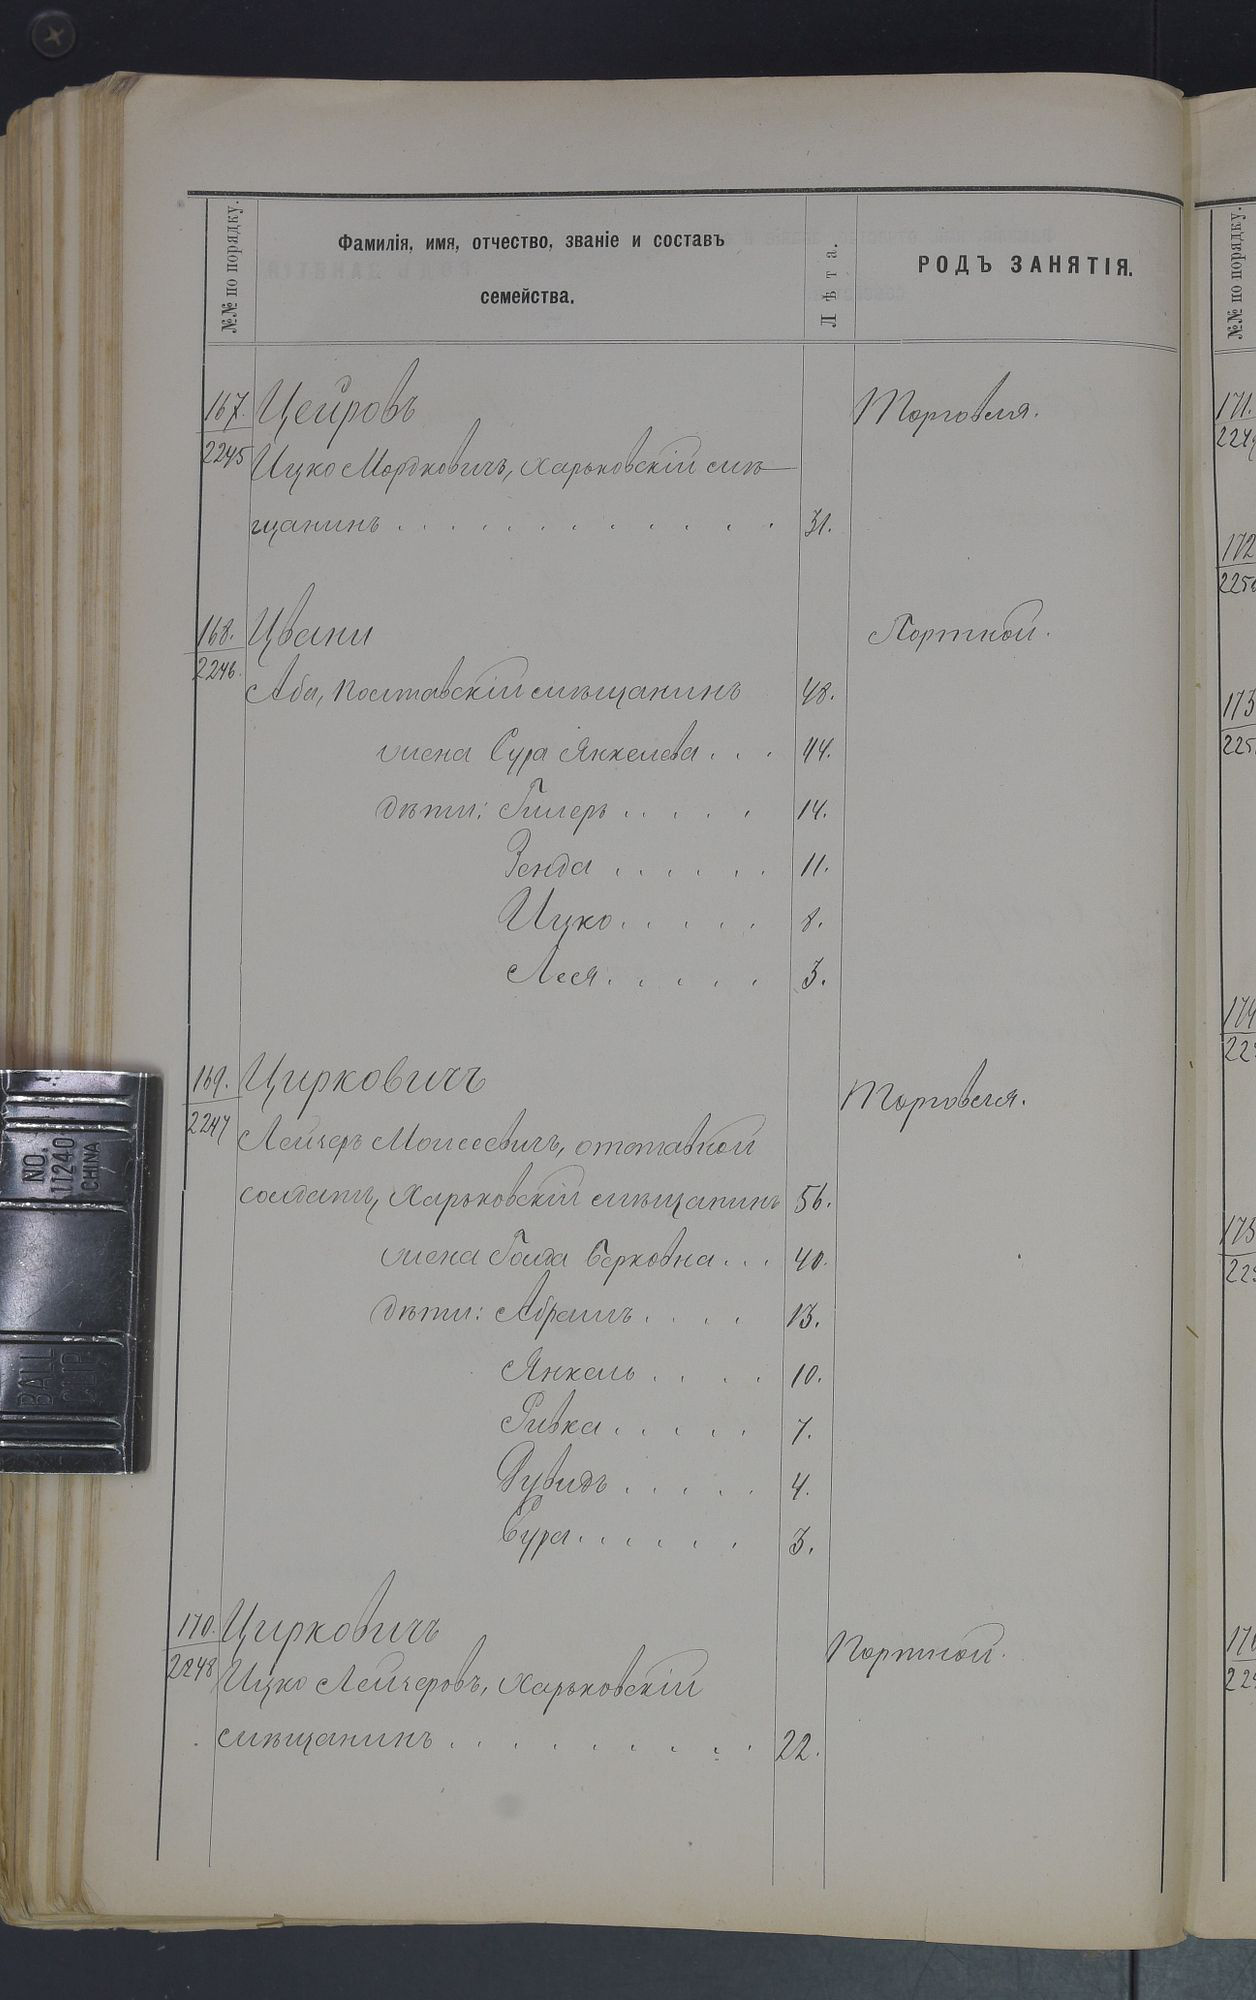 №№ по порядку.
Фамилія, имя, отчество, званіе и составъ
семейства.
Лѣта.
РОДЪ ЗАНЯТІЯ.
№№ по порядку.
167. Цейровъ Торговля.
2245 Ицко Мордковичъ, Харьковскій мѣ-
щанинъ . . . . . . . . . . . . 31.
168. Цвани Портной.
2246. Аба, Поставскій мѣщанинъ 48.
жена Сура Янкелева . . . 44.
дѣти: Гилеръ . . . . . 14.
Зенда . . . . . . 11.
Ицко . . . . . 8.
Лея . . . . . . 3.
169. Цирковичъ Торговля.
2247 Лейзеръ Моисеевичъ, отставной
солдатъ, Харьковскій мѣщанинъ 56.
жена Голда Берковна . . . 40.
дѣти: Абрамъ . . . . 13.
Янкель . . . . 10.
Ривка . . . . . 7.
Дувидъ . . . . . 4.
Сура . . . . . . 3.
170. Цирковичъ Портной.
2248 Ицко Лейзеровъ, Харьковскій
мѣщанинъ . . . . . . . . . 22.
171.
172
173
174
175
NO.
11240
CHINA
BALL
CLIP